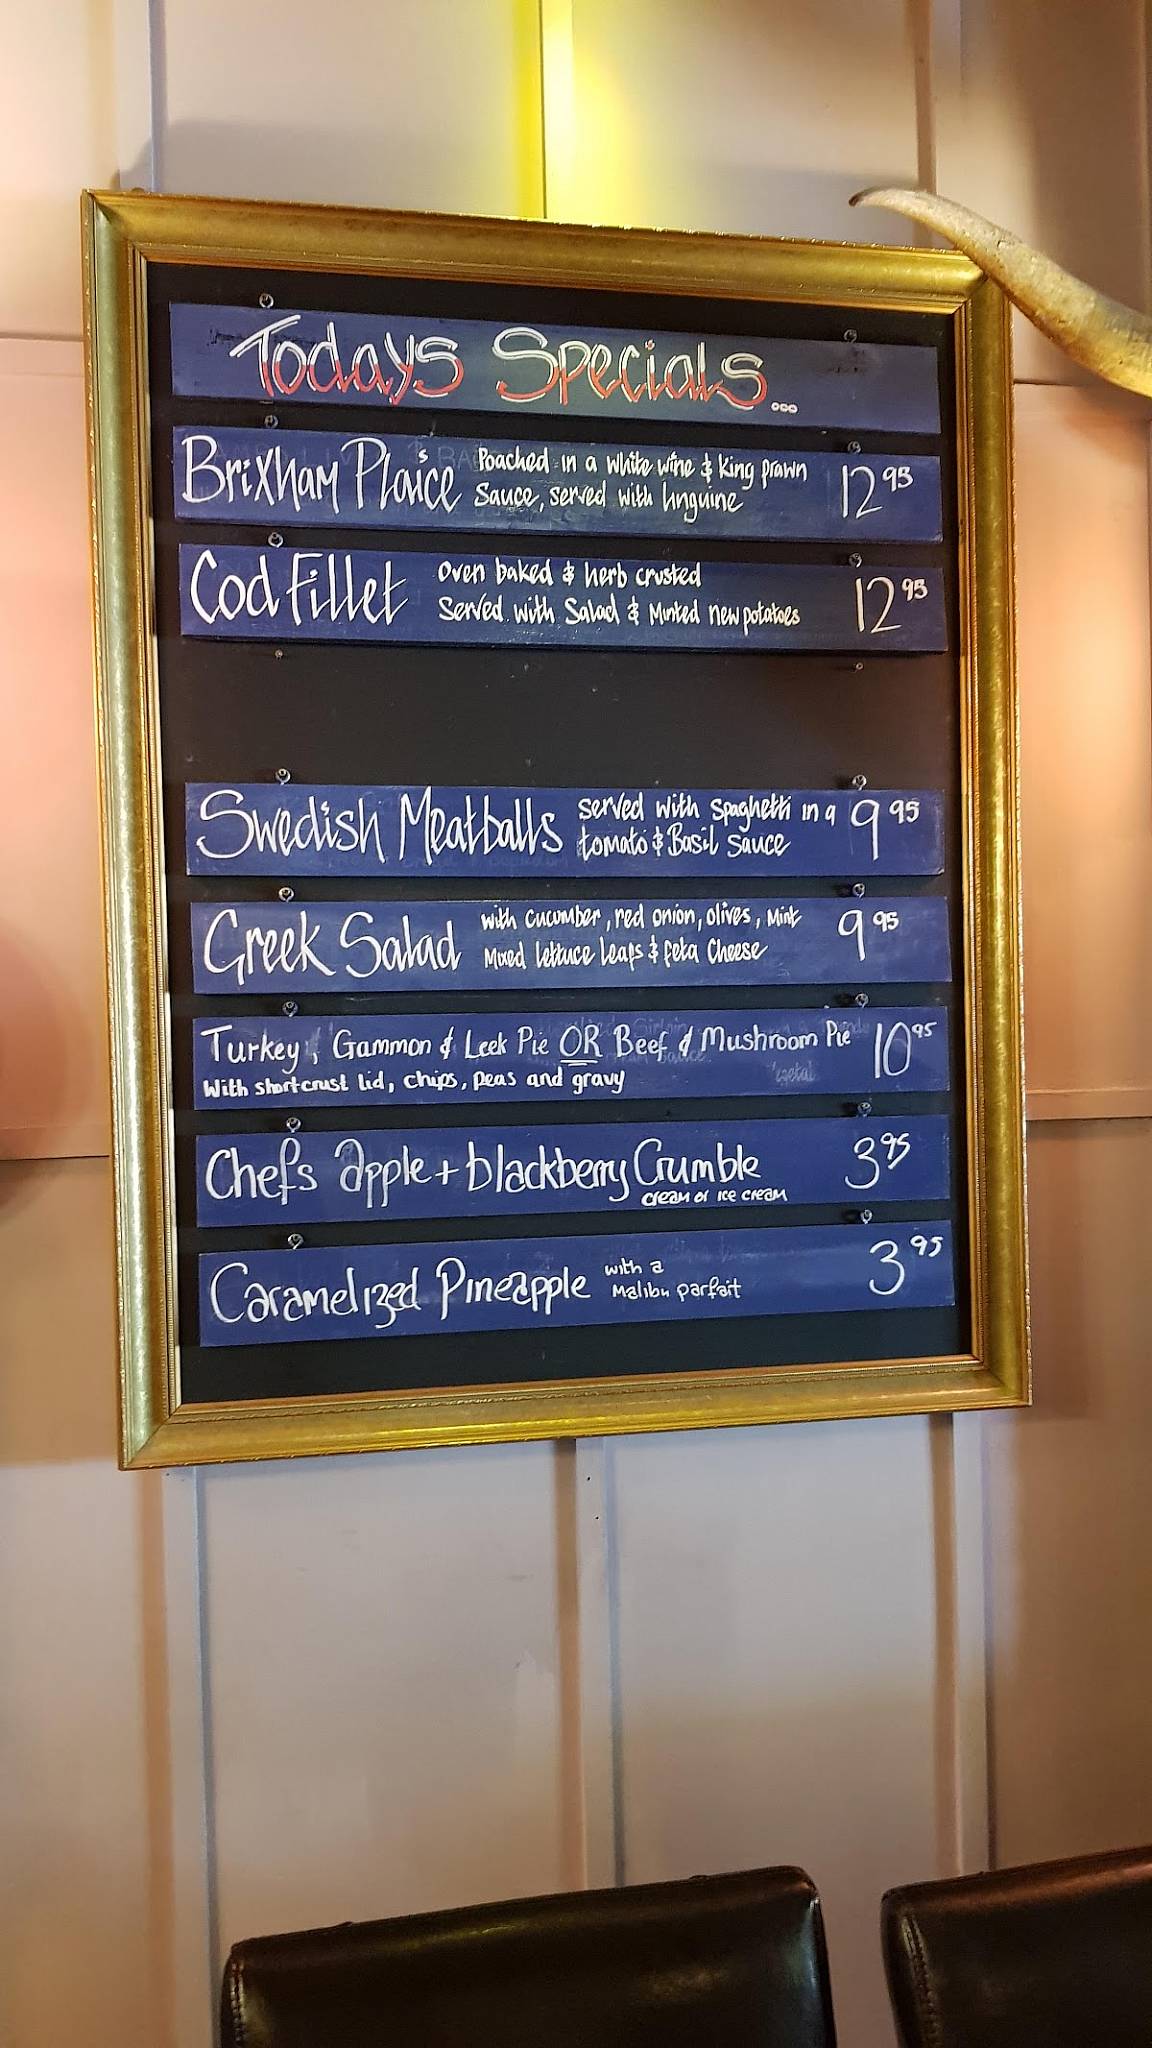 Todays Specials...
Brixham Plaice Poached in a white wine & king prawn 12 95
Sauce, served with linguine
Cod Fillet oven baked & herb crusted 12 95
Served with Salad & Minted new potatoes
Swedish Meatballs served with spaghetti in a 9 95
tomato & Basil Sauce
Greek Salad with cucumber, red onion, olives, Mint 9 95
Mixed lettuce leafs & feta Cheese
Turkey, Gammon & Leek Pie OR Beef & Mushroom Pie 10 95
With shortcrust lid, chips, peas and gravy
Chefs apple + blackberry Crumble 3 95
cream or ice cream
Caramelized Pineapple with a 3 95
Malibu parfait